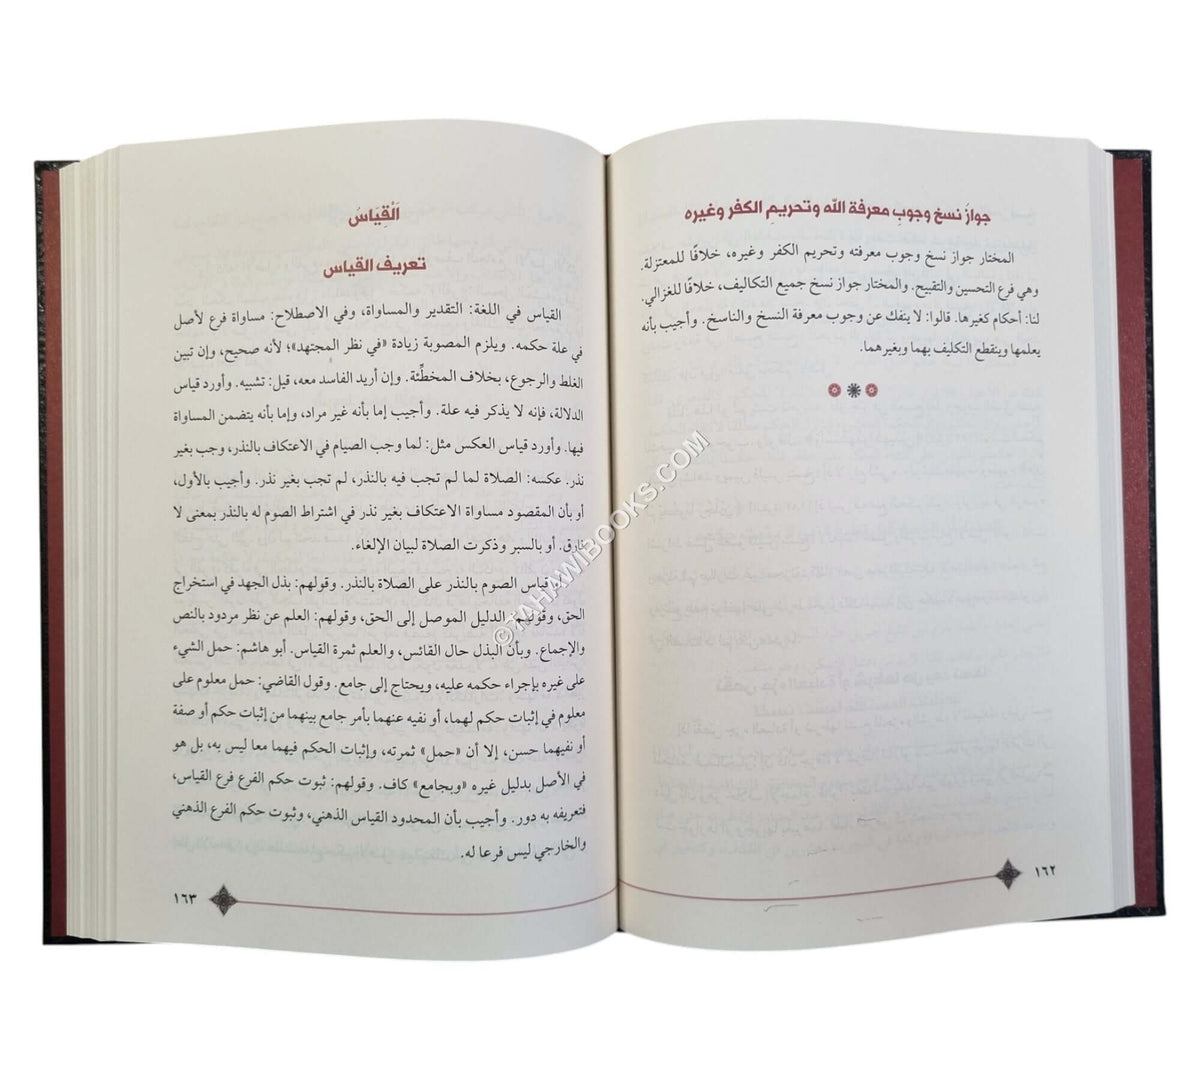 جوازُ نسخِ وجوبِ معرفة اللّه وتحريمِ الكفر وغيره
المختار جواز نسخ وجوب معرفته وتحريم الكفر وغيره، خلافًا للمعتزلة.
وهي فرع التحسين والتقبيح. والمختار جواز نسخ جميع التكاليف، خلافًا للغزالي.
لنا: أحكام كغيرها. قالوا: لا ينفك عن وجوب معرفة النسخ والناسخ. وأجيب بأنه
يعلمها وينقطع التكليف بهما وبغيرهما.
١٦٢
اَلْقِيَاسُ
تعريف القياس
القياس في اللغة: التقدير والمساواة، وفي الاصطلاح: مساواة فرع لأصل
في علة حكمه. ويلزم المصوبة زيادة «في نظر المجتهد»؛ لأنه صحيح، وإن تبين
الغلط والرجوع، بخلاف المخطِّئة. وإن أريد الفاسد معه، قيل: تشبيه. وأورد قياس
الدلالة، فإنه لا يذكر فيه علة. وأجيب إما بأنه غير مراد، وإما بأنه يتضمن المساواة
فيها. وأورد قياس العكس مثل: لما وجب الصيام في الاعتكاف بالنذر، وجب بغير
نذر. عكسه: الصلاة لما لم تجب فيه بالنذر، لم تجب بغير نذر. وأجيب بالأول،
أو بأن المقصود مساواة الاعتكاف بغير نذر في اشتراط الصوم له بالنذر بمعنى لا
فارق. أو بالسبر وذكرت الصلاة لبيان الإلغاء.
قياس الصوم بالنذر على الصلاة بالنذر. وقولهم: بذل الجهد في استخراج
الحق، وقولهم: الدليل الموصل إلى الحق، وقولهم: العلم عن نظر مردود بالنص
والإجماع. وبأن البذل حال القائس، والعلم ثمرة القياس. أبو هاشم: حمل الشيء
على غيره بإجراء حكمه عليه، ويحتاج إلى جامع. وقول القاضي: حمل معلوم على
معلوم في إثبات حكم لهما، أو نفيه عنهما بأمر جامع بينهما من إثبات حكم أو صفة
أو نفيهما حسن، إلا أن "حمل" ثمرته، وإثبات الحكم فيهما معا ليس به، بل هو
في الأصل بدليل غيره «وبجامع» كاف. وقولهم: ثبوت حكم الفرع فرع القياس،
فتعريفه به دور. وأجيب بأن المحدود القياس الذهني، وثبوت حكم الفرع الذهني
والخارجي ليس فرعا له.
١٦٣
©TAHAWIBOOKS.COM